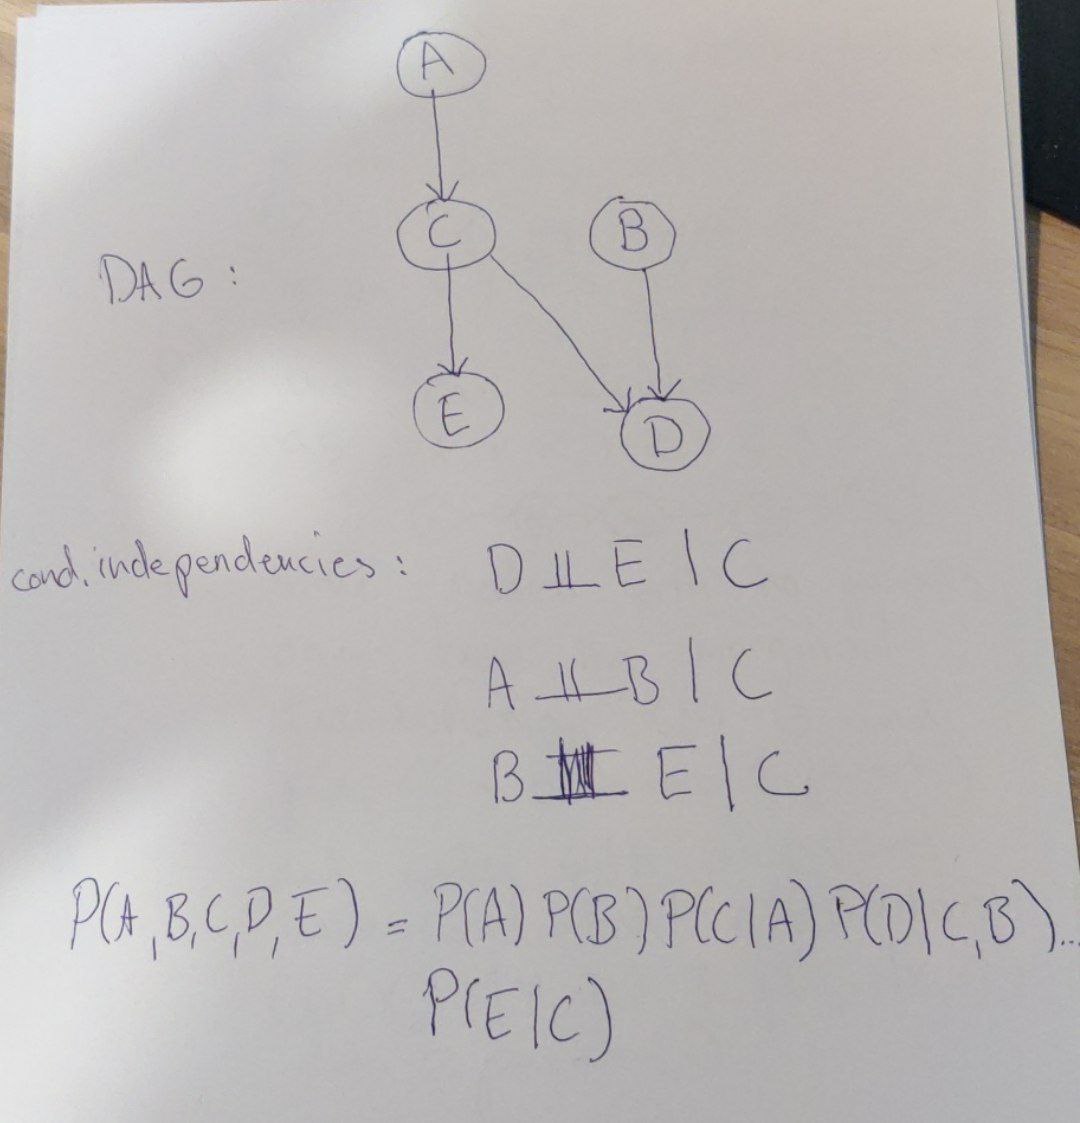 A
C B
DAG :
E
D
cond. independencies : D ⫫ E | C
A ⫫ B | C
B ⫫ E | C
P(A,B,C,D,E) = P(A) P(B) P(C|A) P(D|C,B)...
P(E|C)